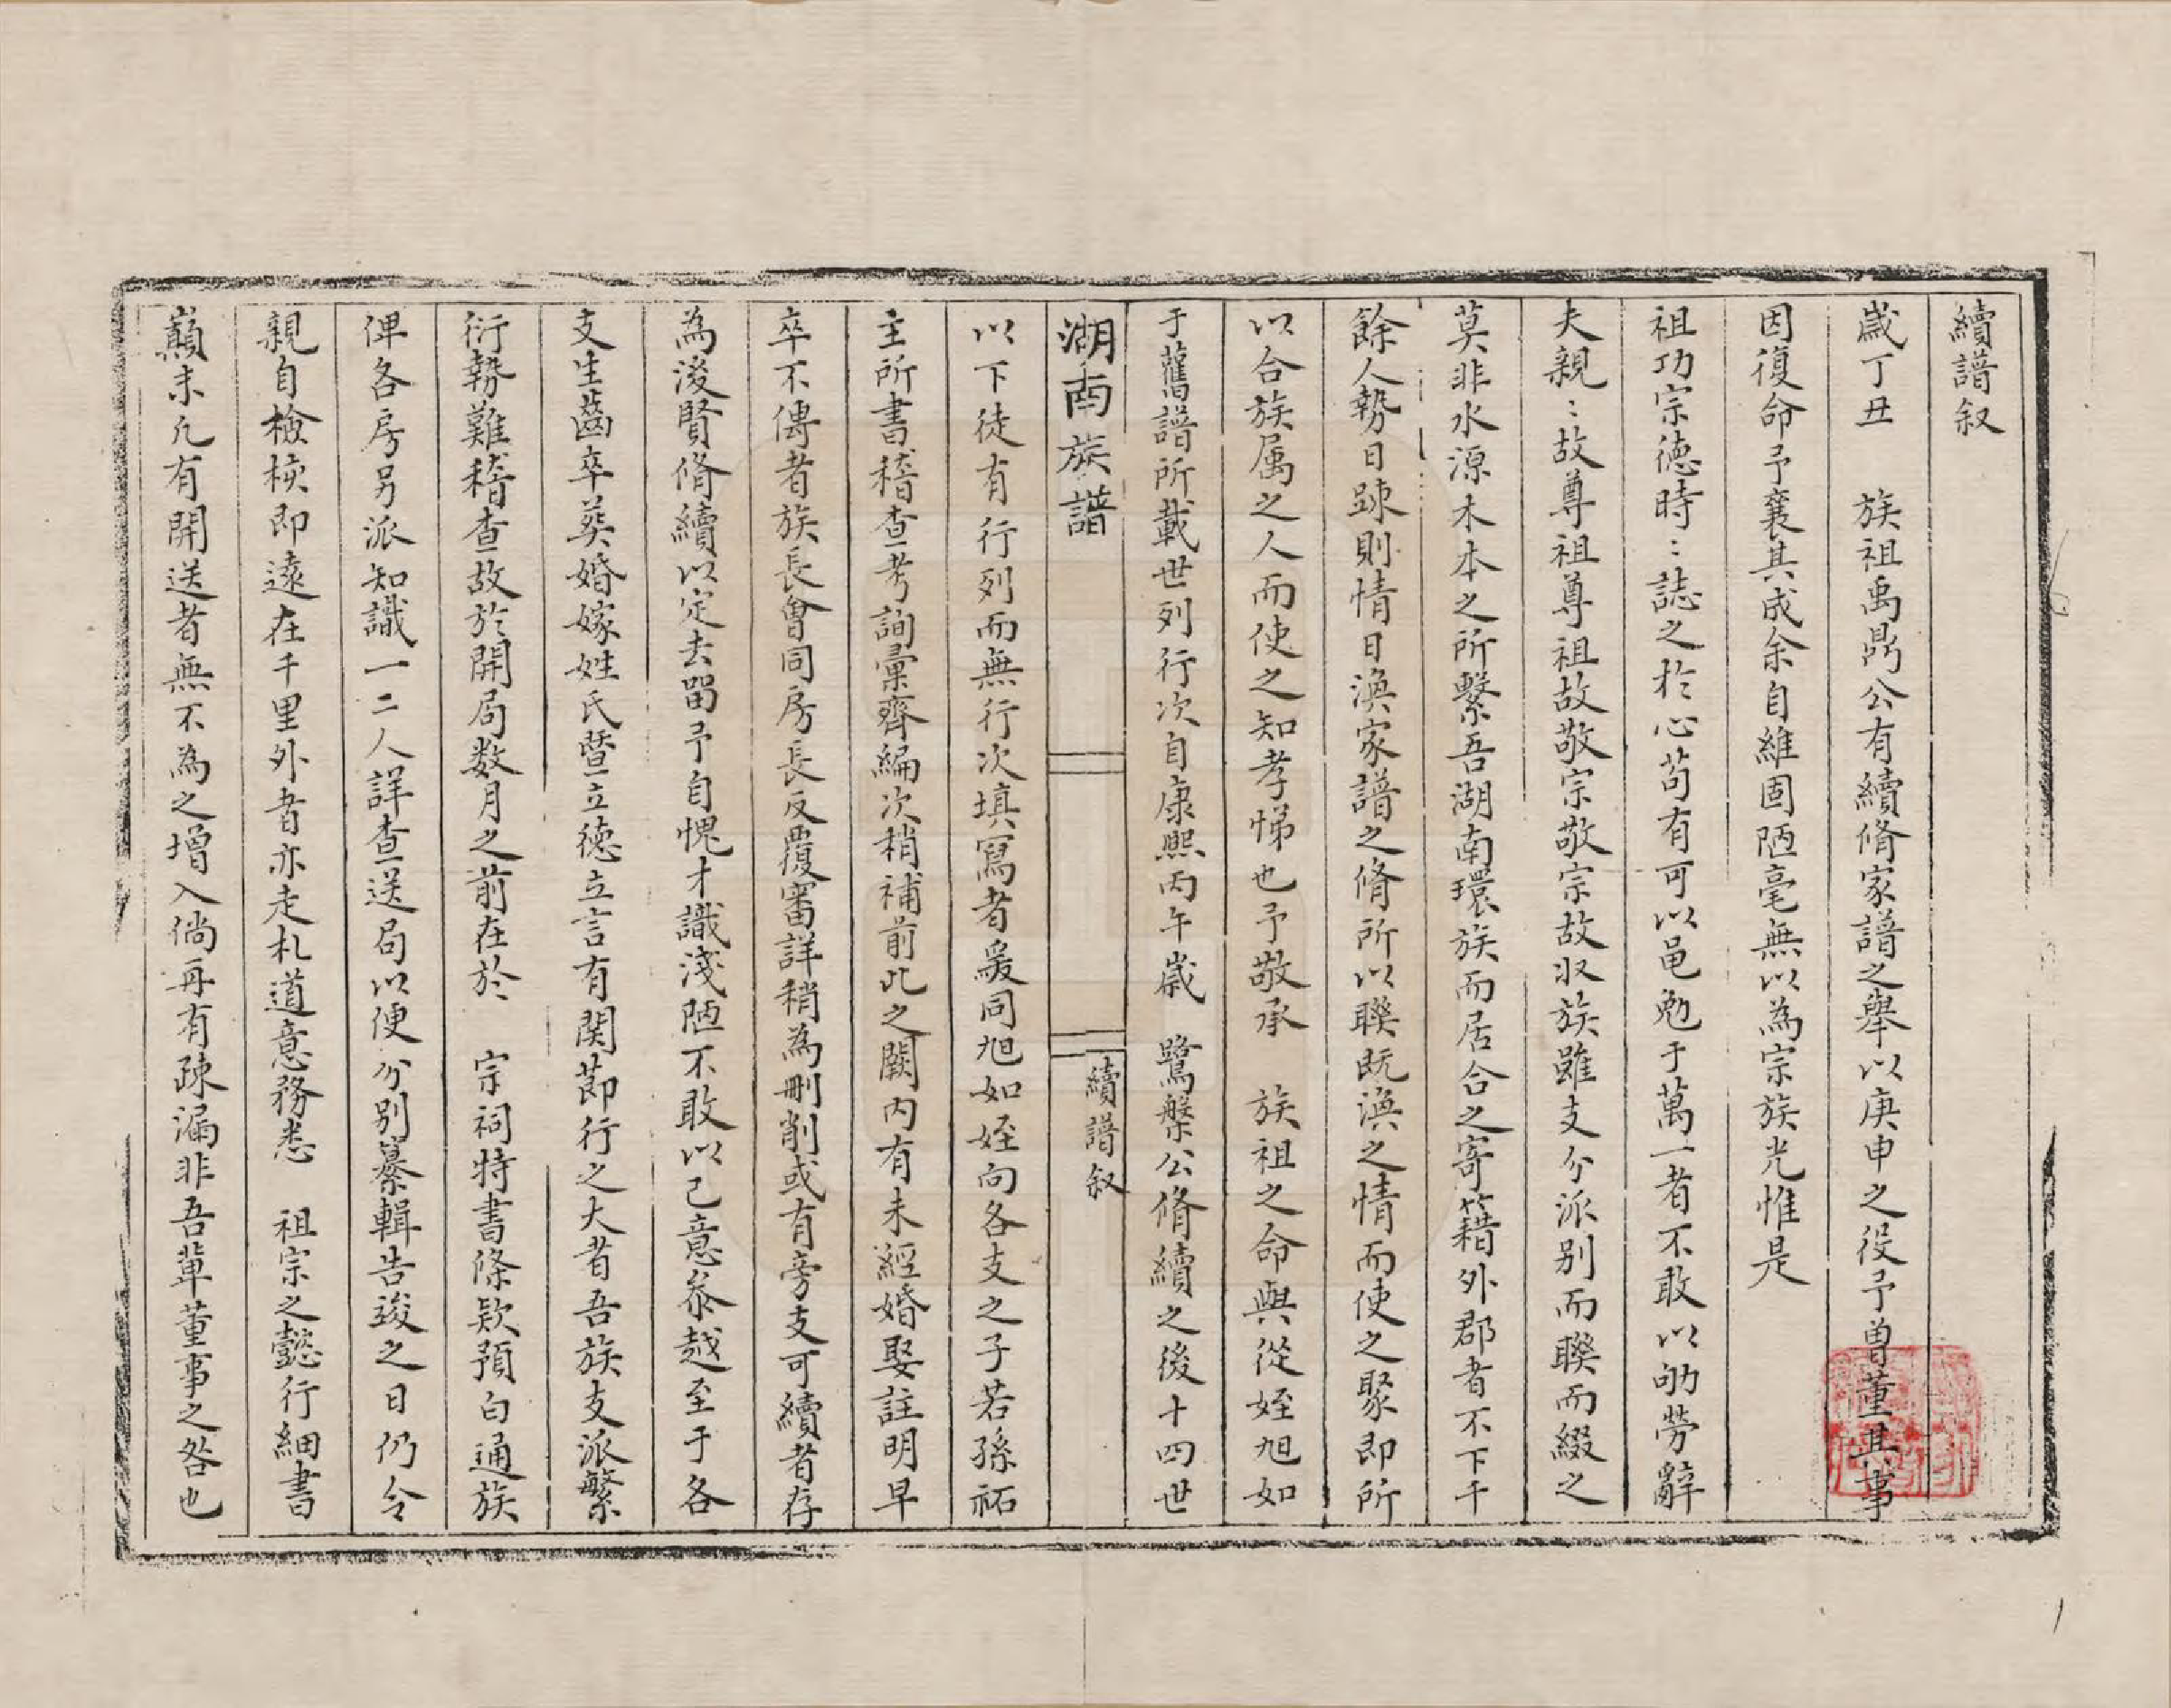 續譜叙
歲丁丑　族祖禹鼎公有續脩家譜之舉以庚申之役予曾董其事
因復命予襄其成余自維固陋毫無以為宗族光惟是
祖功宗德時〻誌之於心苟有可以黽勉于萬一者不敢以劬勞辭
夫親〻故尊祖尊祖故敬宗敬宗故收族雖支分派別而聯而綴之
莫非水源木本之所繫吾湖南環族而居合之寄籍外郡者不下千
餘人勢日踈則情日渙家譜之脩所以聯既渙之情而使之聚即所
以合族属之人而使之知孝悌也予敬承　族祖之命與從姪旭如
于舊譜所載世列行次自康熙丙午歲　鷺槃公脩續之後十四世
湖南族譜　續譜叙
以下徒有行列而無行次填寫者爰同旭如姪向各支之子若孫祏
主所書稽查考詢彙齊編次稍補前此之闕内有未經婚娶註明早
卒不傳者族長會同房長反覆審詳稍為刪削或有旁支可續者存
為後賢脩續以定去留予自愧才識淺陋不敢以己意叅越至于各
支生齒卒葬婚嫁姓氏暨立德立言有関節行之大者吾族支派繁
衍勢難稽查故於開局数月之前在於　宗祠特書條欵預白通族
俾各房另派知識一二人詳查送局以便分別纂輯告竣之日仍令
親自檢核即遠在千里外者亦走札道意務悉　祖宗之懿行細書
巔末凢有開送者無不為之增入倘再有踈漏非吾輩董事之咎也